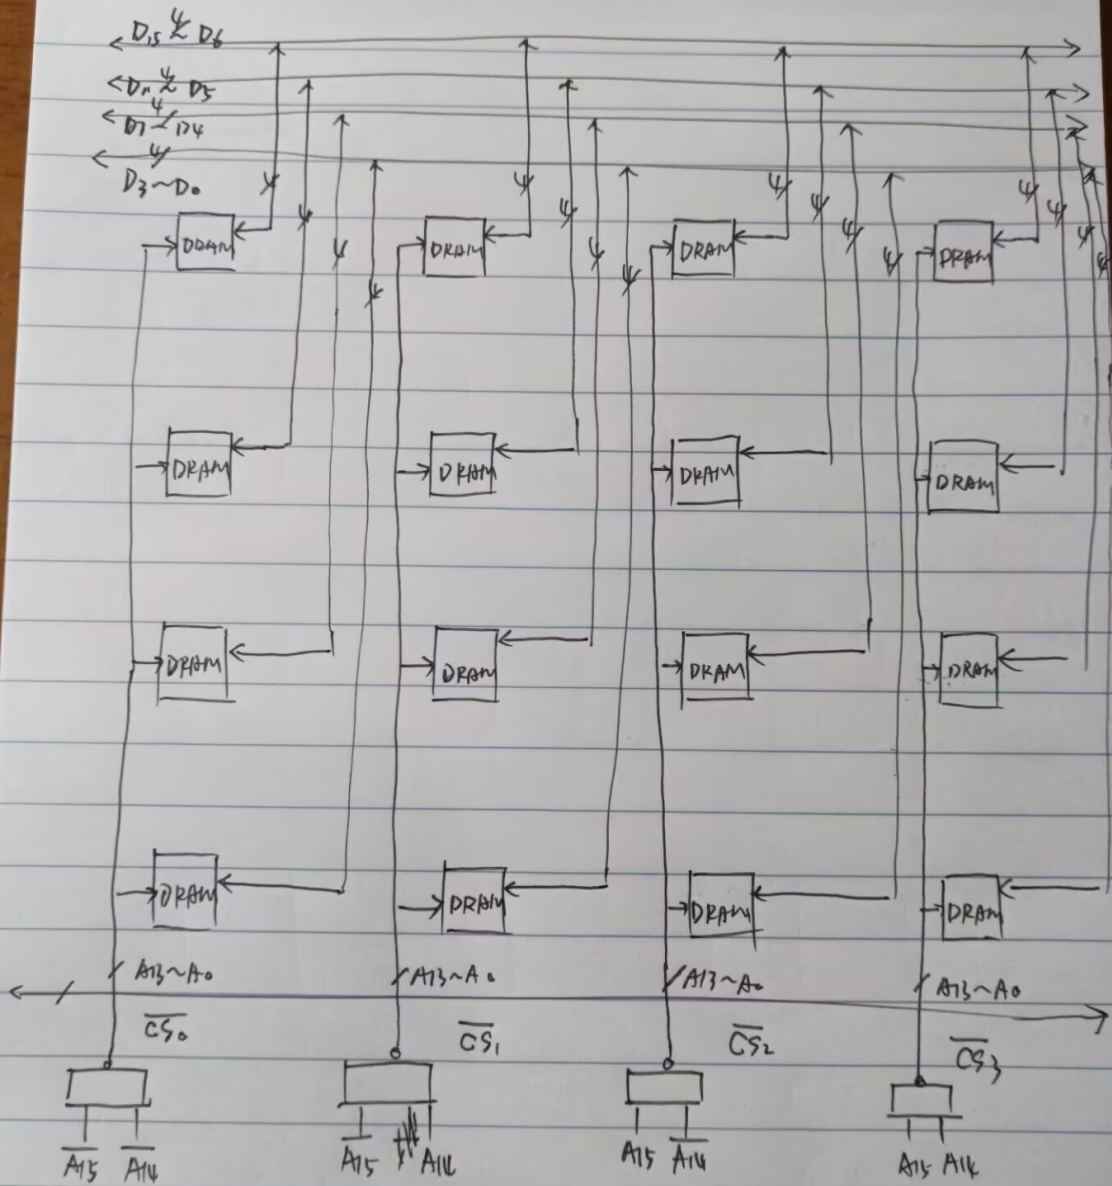 D15 4 D6
D11 4 D5
4
D7 D4
4
D3~D0
4 4 4 4
4 4 4 4
4 4 4 4
4 4 4 4
DRAM DRAM DRAM DRAM
DRAM DRAM DRAM DRAM
DRAM DRAM DRAM DRAM
DRAM DRAM DRAM DRAM
A13~A0 A13~A0 A13~A0 A13~A0
C̅S̅₀ C̅S̅₁ C̅S̅₂ C̅S̅₃
A̅1̅5̅ A̅1̅4̅ A̅1̅5̅ A14 A15 A̅1̅4̅ A15 A14